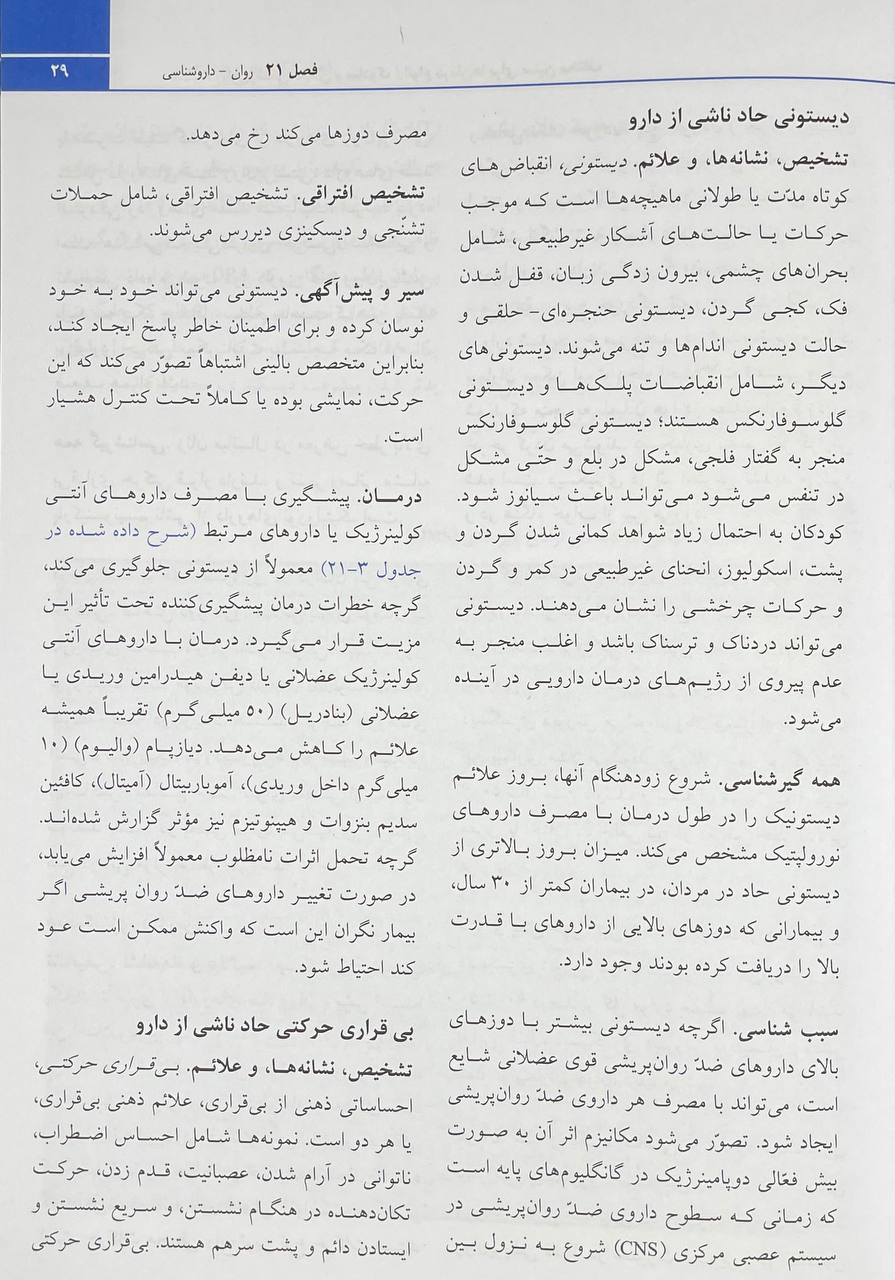 فصل ۲۱ روان - داروشناسی
۲۹
دیستونی حاد ناشی از دارو
تشخیص، نشانه‌ها، و علائم. دیستونی، انقباض‌های
کوتاه مدّت یا طولانی ماهیچه‌ها است که موجب
حرکات یا حالت‌های آشکار غیرطبیعی، شامل
بحران‌های چشمی، بیرون زدگی زبان، قفل شدن
فک، کجی گردن، دیستونی حنجره‌ای- حلقی و
حالت دیستونی اندام‌ها و تنه می‌شوند. دیستونی‌های
دیگر، شامل انقباضات پلک‌ها و دیستونی
گلوسوفارنکس هستند؛ دیستونی گلوسوفارنکس
منجر به گفتار فلجی، مشکل در بلع و حتّی مشکل
در تنفس می‌شود می‌تواند باعث سیانوز شود.
کودکان به احتمال زیاد شواهد کمانی شدن گردن و
پشت، اسکولیوز، انحنای غیرطبیعی در کمر و گردن
و حرکات چرخشی را نشان می‌دهند. دیستونی
می‌تواند دردناک و ترسناک باشد و اغلب منجر به
عدم پیروی از رژیم‌های درمان دارویی در آینده
می‌شود.
همه گیرشناسی. شروع زودهنگام آنها، بروز علائم
دیستونیک را در طول درمان با مصرف داروهای
نورولپتیک مشخص می‌کند. میزان بروز بالاتری از
دیستونی حاد در مردان، در بیماران کمتر از ۳۰ سال،
و بیمارانی که دوزهای بالایی از داروهای با قدرت
بالا را دریافت کرده بودند وجود دارد.
سبب شناسی. اگرچه دیستونی بیشتر با دوزهای
بالای داروهای ضدّ روان‌پریشی قوی عضلانی شایع
است، می‌تواند با مصرف هر داروی ضدّ روان‌پریشی
ایجاد شود. تصوّر می‌شود مکانیزم اثر آن به صورت
بیش فعّالی دوپامینرژیک در گانگلیوم‌های پایه است
که زمانی که سطوح داروی ضدّ روان‌پریشی در
سیستم عصبی مرکزی (CNS) شروع به نزول بین
مصرف دوزها می‌کند رخ می‌دهد.
تشخیص افتراقی. تشخیص افتراقی، شامل حملات
تشنّجی و دیسکینزی دیررس می‌شوند.
سیر و پیش‌آگهی. دیستونی می‌تواند خود به خود
نوسان کرده و برای اطمینان خاطر پاسخ ایجاد کند،
بنابراین متخصص بالینی اشتباهاً تصوّر می‌کند که این
حرکت، نمایشی بوده یا کاملاً تحت کنترل هشیار
است.
درمان. پیشگیری با مصرف داروهای آنتی
کولینرژیک یا داروهای مرتبط (شرح داده شده در
جدول ۳-۲۱) معمولاً از دیستونی جلوگیری می‌کند،
گرچه خطرات درمان پیشگیری‌کننده تحت تأثیر این
مزیت قرار می‌گیرد. درمان با داروهای آنتی
کولینرژیک عضلانی یا دیفن هیدرامین وریدی یا
عضلانی (بنادریل) (۵۰ میلی‌گرم) تقریباً همیشه
علائم را کاهش می‌دهد. دیازپام (والیوم) (۱۰
میلی‌گرم داخل وریدی)، آموباربیتال (آمیتال)، کافئین
سدیم بنزوات و هیپنوتیزم نیز مؤثر گزارش شده‌اند.
گرچه تحمل اثرات نامظلوب معمولاً افزایش می‌یابد،
در صورت تغییر داروهای ضدّ روان پریشی اگر
بیمار نگران این است که واکنش ممکن است عود
کند احتیاط شود.
بی قراری حرکتی حاد ناشی از دارو
تشخیص، نشانه‌ها، و علائم. بی‌قراری حرکتی،
احساساتی ذهنی از بی‌قراری، علائم ذهنی بی‌قراری،
یا هر دو است. نمونه‌ها شامل احساس اضطراب،
ناتوانی در آرام شدن، عصبانیت، قدم زدن، حرکت
تکان‌دهنده در هنگام نشستن، و سریع نشستن و
ایستادن دائم و پشت سرهم هستند. بی‌قراری حرکتی